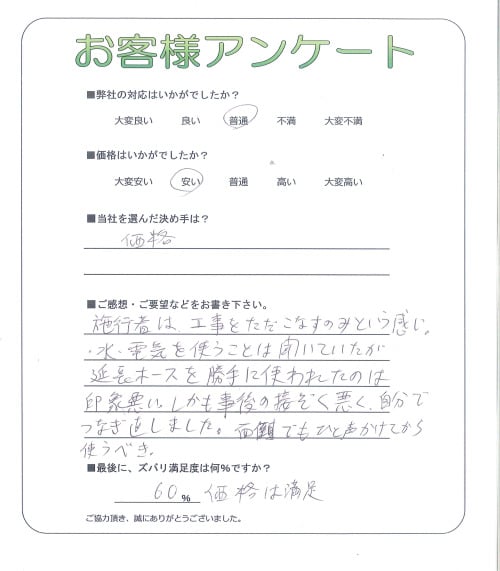 お客様アンケート
■弊社の対応はいかがでしたか？
大変良い 良い 普通 不満 大変不満
■価格はいかがでしたか？
大変安い 安い 普通 高い 大変高い
■当社を選んだ決め手は？
価格
■ご感想・ご要望などをお書き下さい。
施行者は、工事をただこなすのみという感じ。
・水・電気を使うことは聞いていたが
延長ホースを勝手に使われたのは
印象悪い。しかも事後の接ぞく悪く、自分で
つなぎ直しました。面倒でもひと声かけてから
使うべき。
■最後に、ズバリ満足度は何％ですか？
60％ 価格は満足
ご協力頂き、誠にありがとうございました。